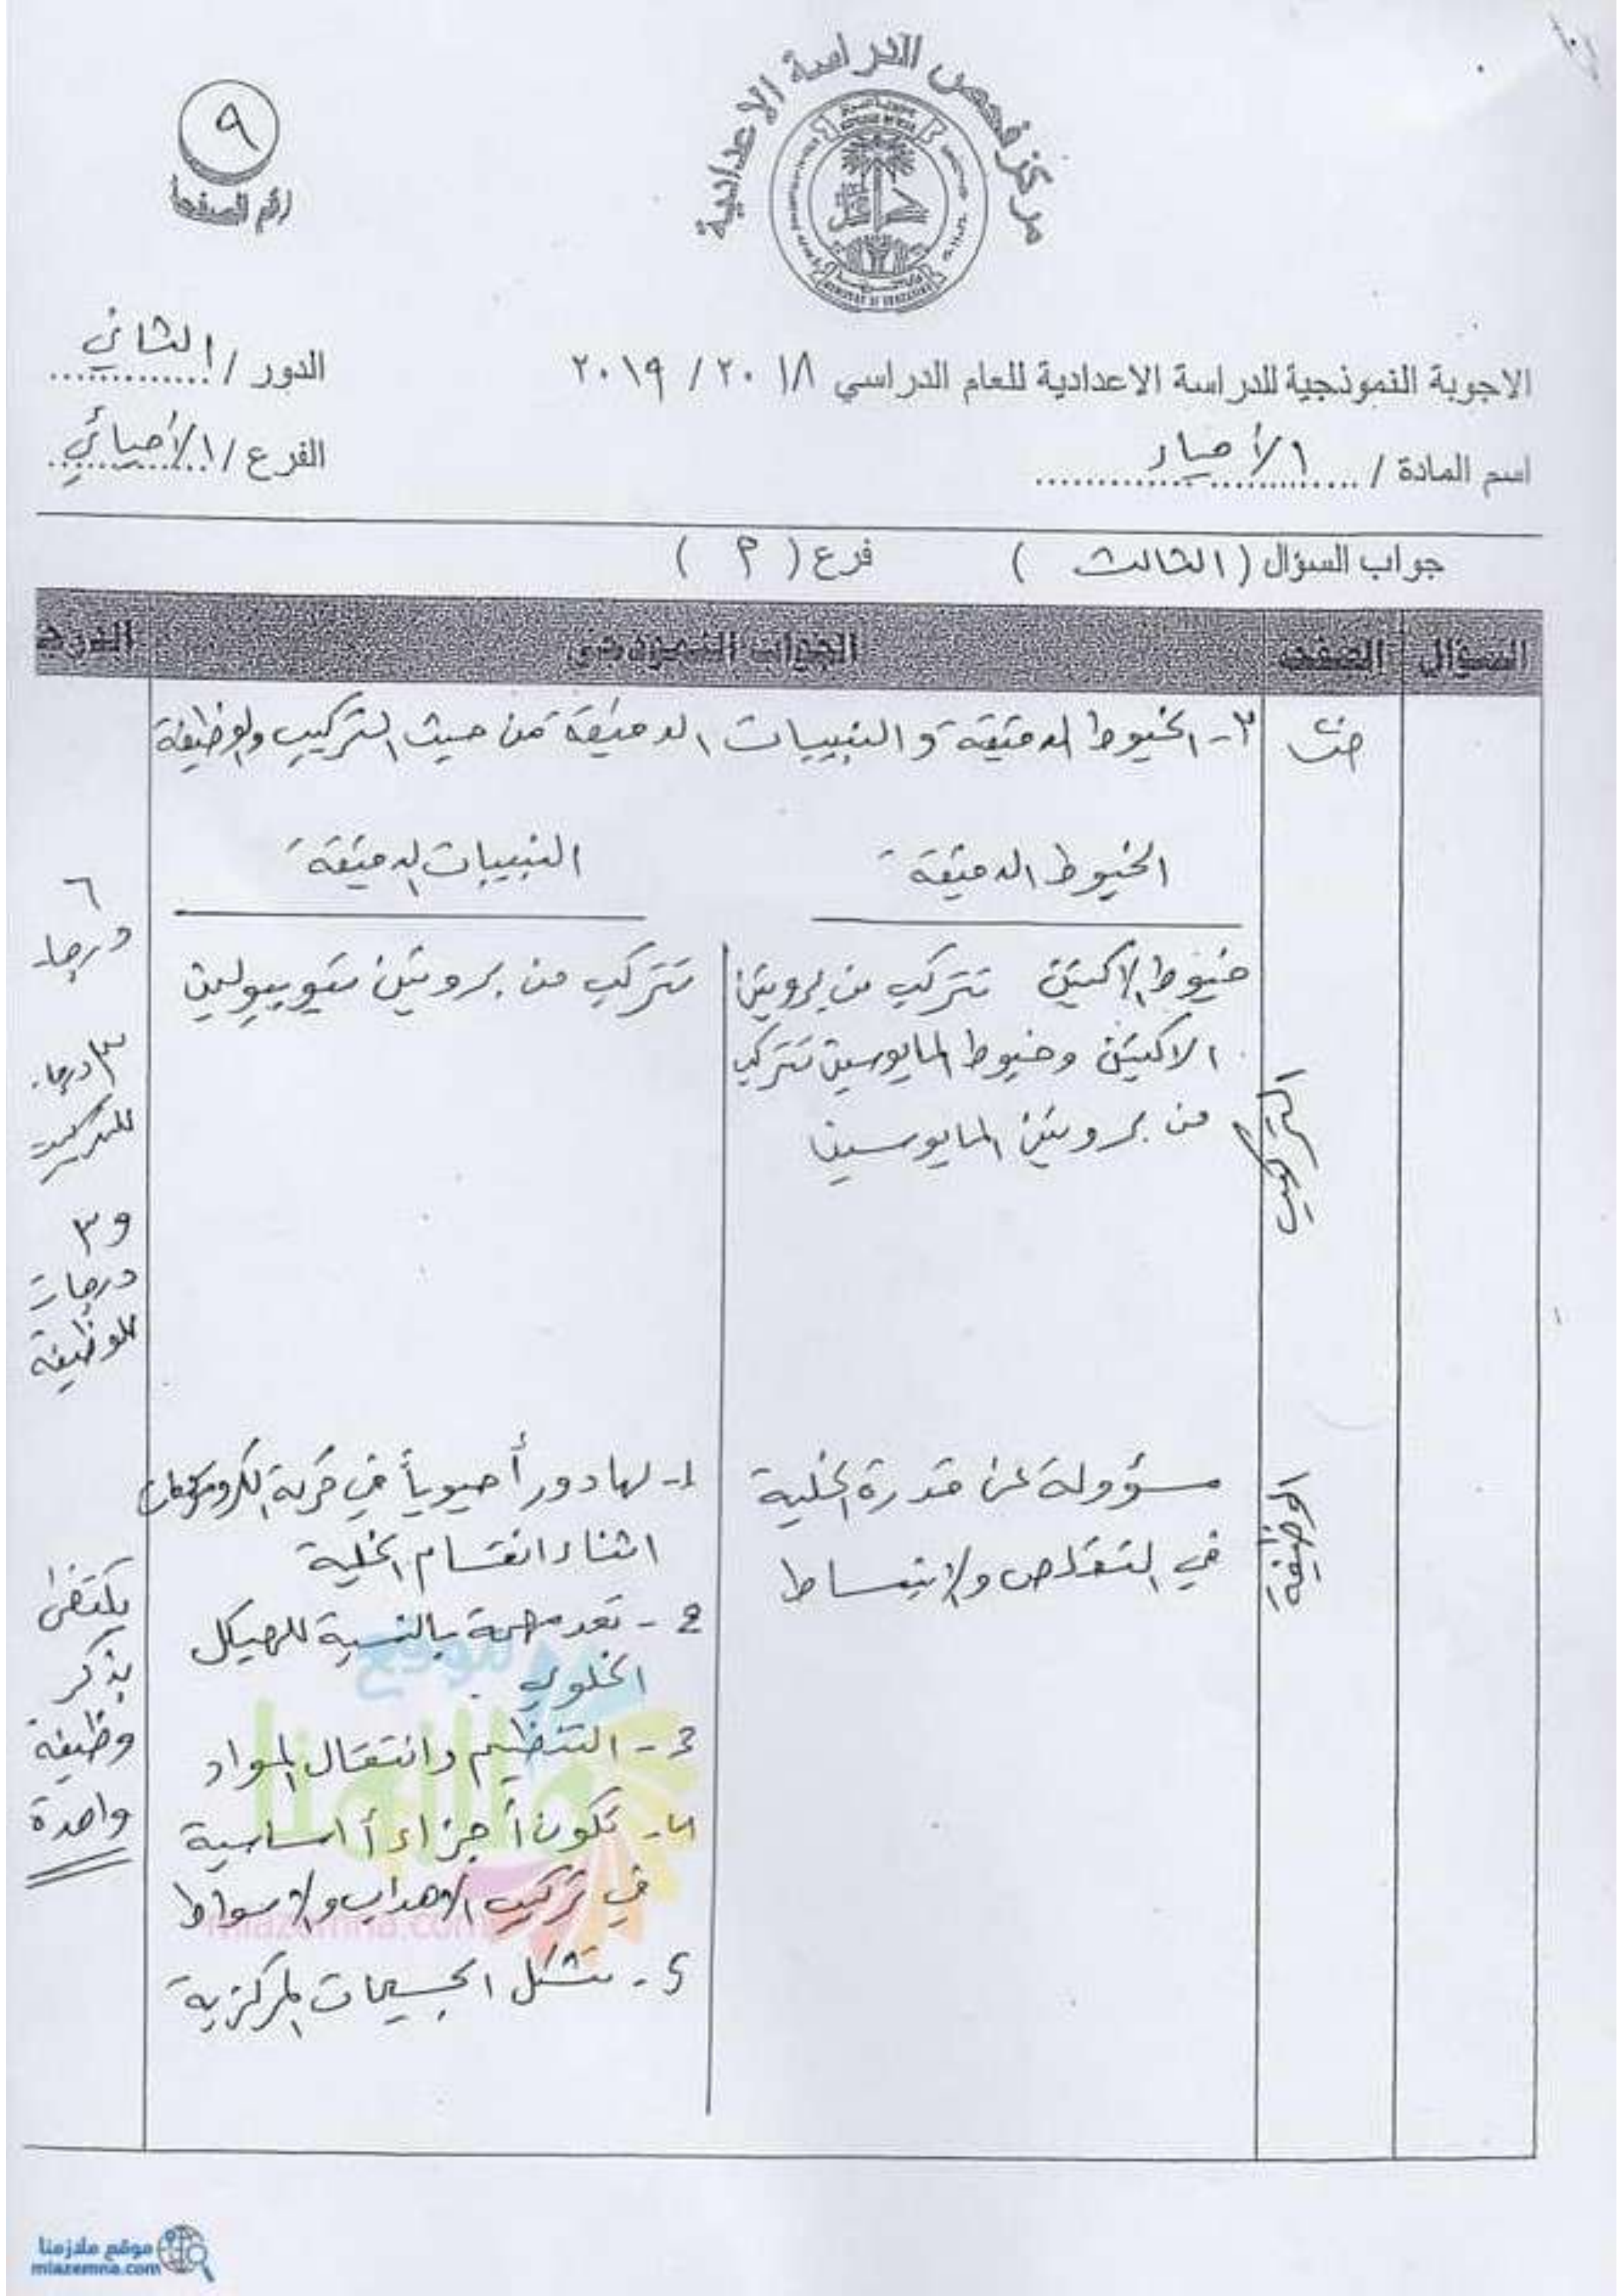 مركز فحص الدراسة الاعدادية
٩
رقم الصفحة
الاجوبة النموذجية للدراسة الاعدادية للعام الدراسي ٢٠١٨ / ٢٠١٩
الدور / الثاني
اسم المادة / الأحياء
الفرع / الأحيائي
جواب السؤال ( الثالث ) فرع ( P )
السؤال الصفحة الجواب النموذجي الدرجة
٣- الخيوط الدقيقة والنبيبات الدقيقة من حيث التركيب والوظيفة
الخيوط الدقيقة
النبيبات الدقيقة
التركيب
خيوط الاكتين تتركب من بروتين
الاكتين وخيوط المايوسين تتركب
من بروتين المايوسين
تتركب من بروتين تيوبيولين
٦
درجات
٣ درجات
للتركيب
و ٣
درجات
للوظيفة
الوظيفة
مسؤولة عن قدرة الخلية
في التقلص والانبساط
1- لها دوراً حيوياً في حركة الكروموسومات
اثناء انقسام الخلية
2- تعد مهمة بالنسبة للهيكل
الخلوي .
3- التنظيم وانتقال المواد
4- تكون أجزاءً أساسية
في تركيب الأهداب والاسواط
5- تشكل الجسيمات المركزية
يكتفى
بذكر
وظيفة
واحدة
موقع
ملازمنا
mlazemna.com
موقع ملازمنا
mlazemna.com